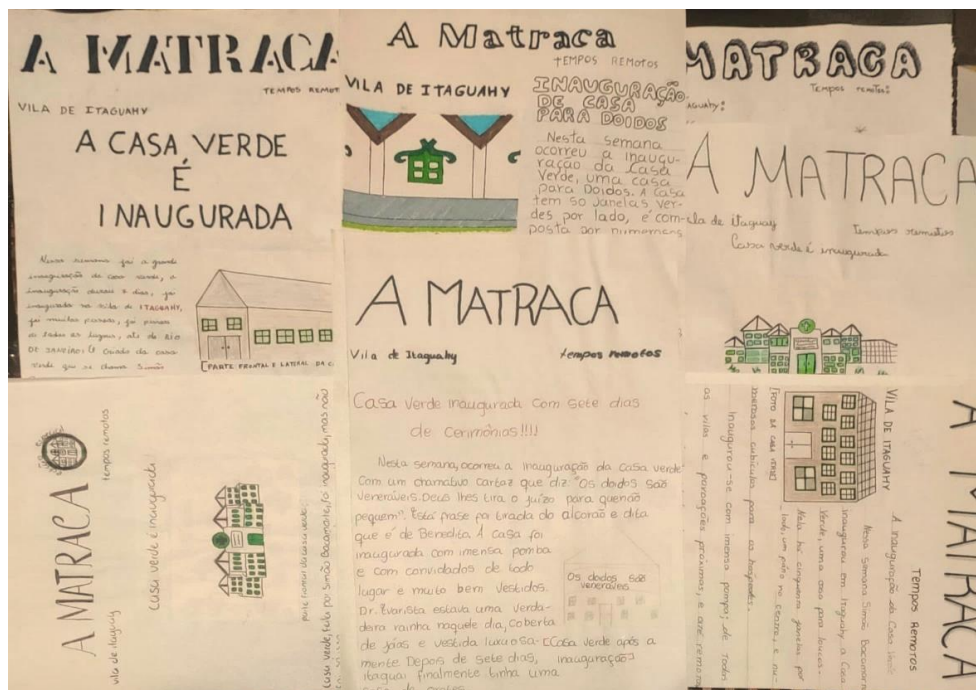 A MATRACA
TEMPOS REMOT
VILA DE ITAGUAHY
A CASA VERDE
É
INAUGURADA
Nessa semana foi a grande
inauguração da casa verde, a
inauguração durou 7 dias, foi
inaugurada na vila de ITAGUAHY,
foi muitas pessoas, foi pessoas
de todos os lugares, até do RIO
DE JANEIRO! O criado da casa
verde que se chama Simão
[PARTE FRONTAL E LATERAL DA C
A Matraca
TEMPOS REMOTOS
VILA DE ITAGUAHY
INAUGURAÇÃO
DE CASA
PARA DOIDOS
Nesta semana
ocorreu a inaugu-
ração da Casa
Verde, uma casa
para Doidos. A casa
tem 50 janelas ver-
des por lado, é com-
posta por numeros
MATRACA
Tempos remotos!
aguahy!
A MATRACA
la de itaguay
Tempos remotos
Casa verde é inaugurada
A MATRACA
Vila de Itaguahy
tempos remotos
Casa verde inaugurada com sete dias
de Cerimônias!!!!
Nesta semana, ocorreu a inauguração da casa verde
Com um chamativo cartaz que diz: "Os doidos são
veneráveis. Deus lhes tira o juízo para que não
pequem". Está frase foi tirada do alcorão e dita
que é de Benedita. A casa foi
inaugurada com imensa pomba
e com convidados de todo
lugar e muito bem vestidos.
Dr. Evarista estava uma verda-
deira rainha naquele dia, coberta
de jóias e vestida luxuosa-
mente. Depois de sete dias,
itaguai finalmente tinha uma
Os doidos são
veneráveis
[Casa Verde após a
inauguração]
A MATRACA
tempos remotos
vila de itaguay
Casa verde é inaugurada!
parte frontal da casa verde;
casa verde, feita por Simão Bacamarte, foi inaugurada, mas não
A MATRACA
Tempos Remotos
VILA DE ITAGUAHY
A inauguração da Casa Verde
Nessa Semana Simão Bacamar
inaugurou em Itaguahy a Casa
Verde, uma casa para loucos.
Nela há cinquenta janelas por
lado, um pátio no centro, e nu-
[FOTO DA CASA VERDE]
merosos cubículos para os hospedes.
Inaugurou-se com imensa pompa; de todas
as vilas e povoações próximas, e até remotas